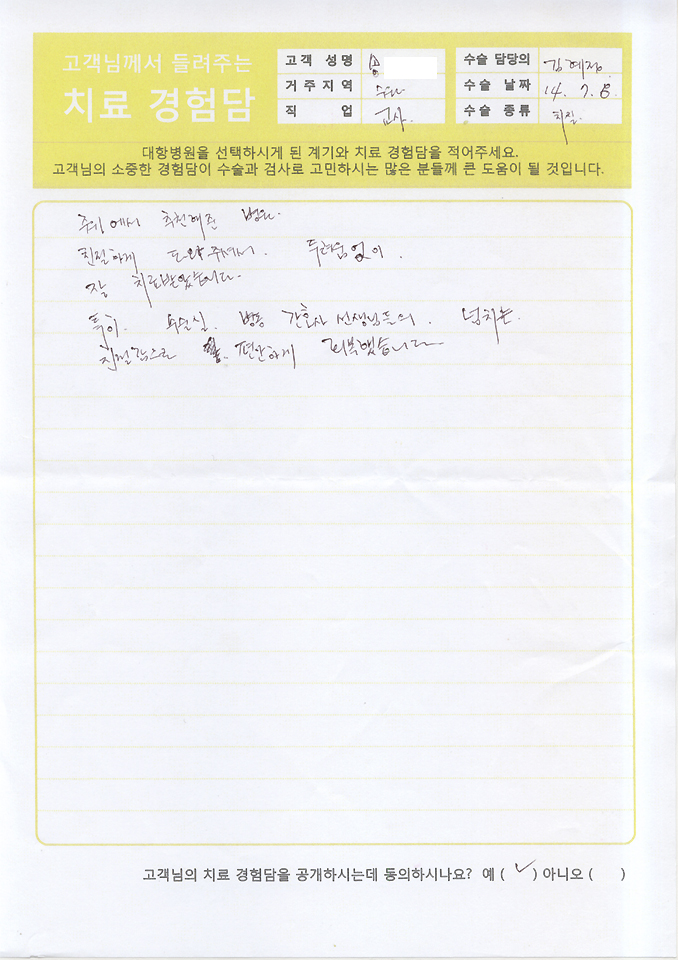 고객님께서 들려주는
치료 경험담
고객 성명 송
거주지역 수원
직 업 교사.
수술 담당의 김혜정.
수술 날짜 14. 7. 8.
수술 종류 치질.
대항병원을 선택하시게 된 계기와 치료 경험담을 적어주세요.
고객님의 소중한 경험담이 수술과 검사로 고민하시는 많은 분들께 큰 도움이 될 것입니다.
주위에서 추천해준 병원.
친절하게 도와주셔서. 두려움없이.
잘 치료받았습니다.
특히. 수술실. 병동 간호사 선생님들의. 넘치는.
친절감으로 편안하게 회복했습니다
고객님의 치료 경험담을 공개하시는데 동의하시나요? 예 ( ✓ ) 아니오 ( )